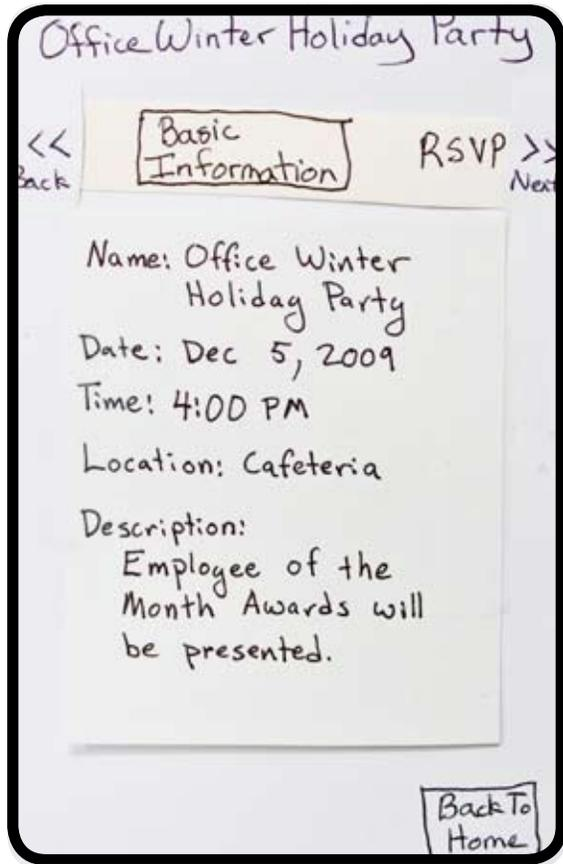 Office Winter Holiday Party
<< Basic RSVP >>
Back Information Next
Name: Office Winter
Holiday Party
Date: Dec 5, 2009
Time: 4:00 PM
Location: Cafeteria
Description:
Employee of the
Month Awards will
be presented.
Back To
Home